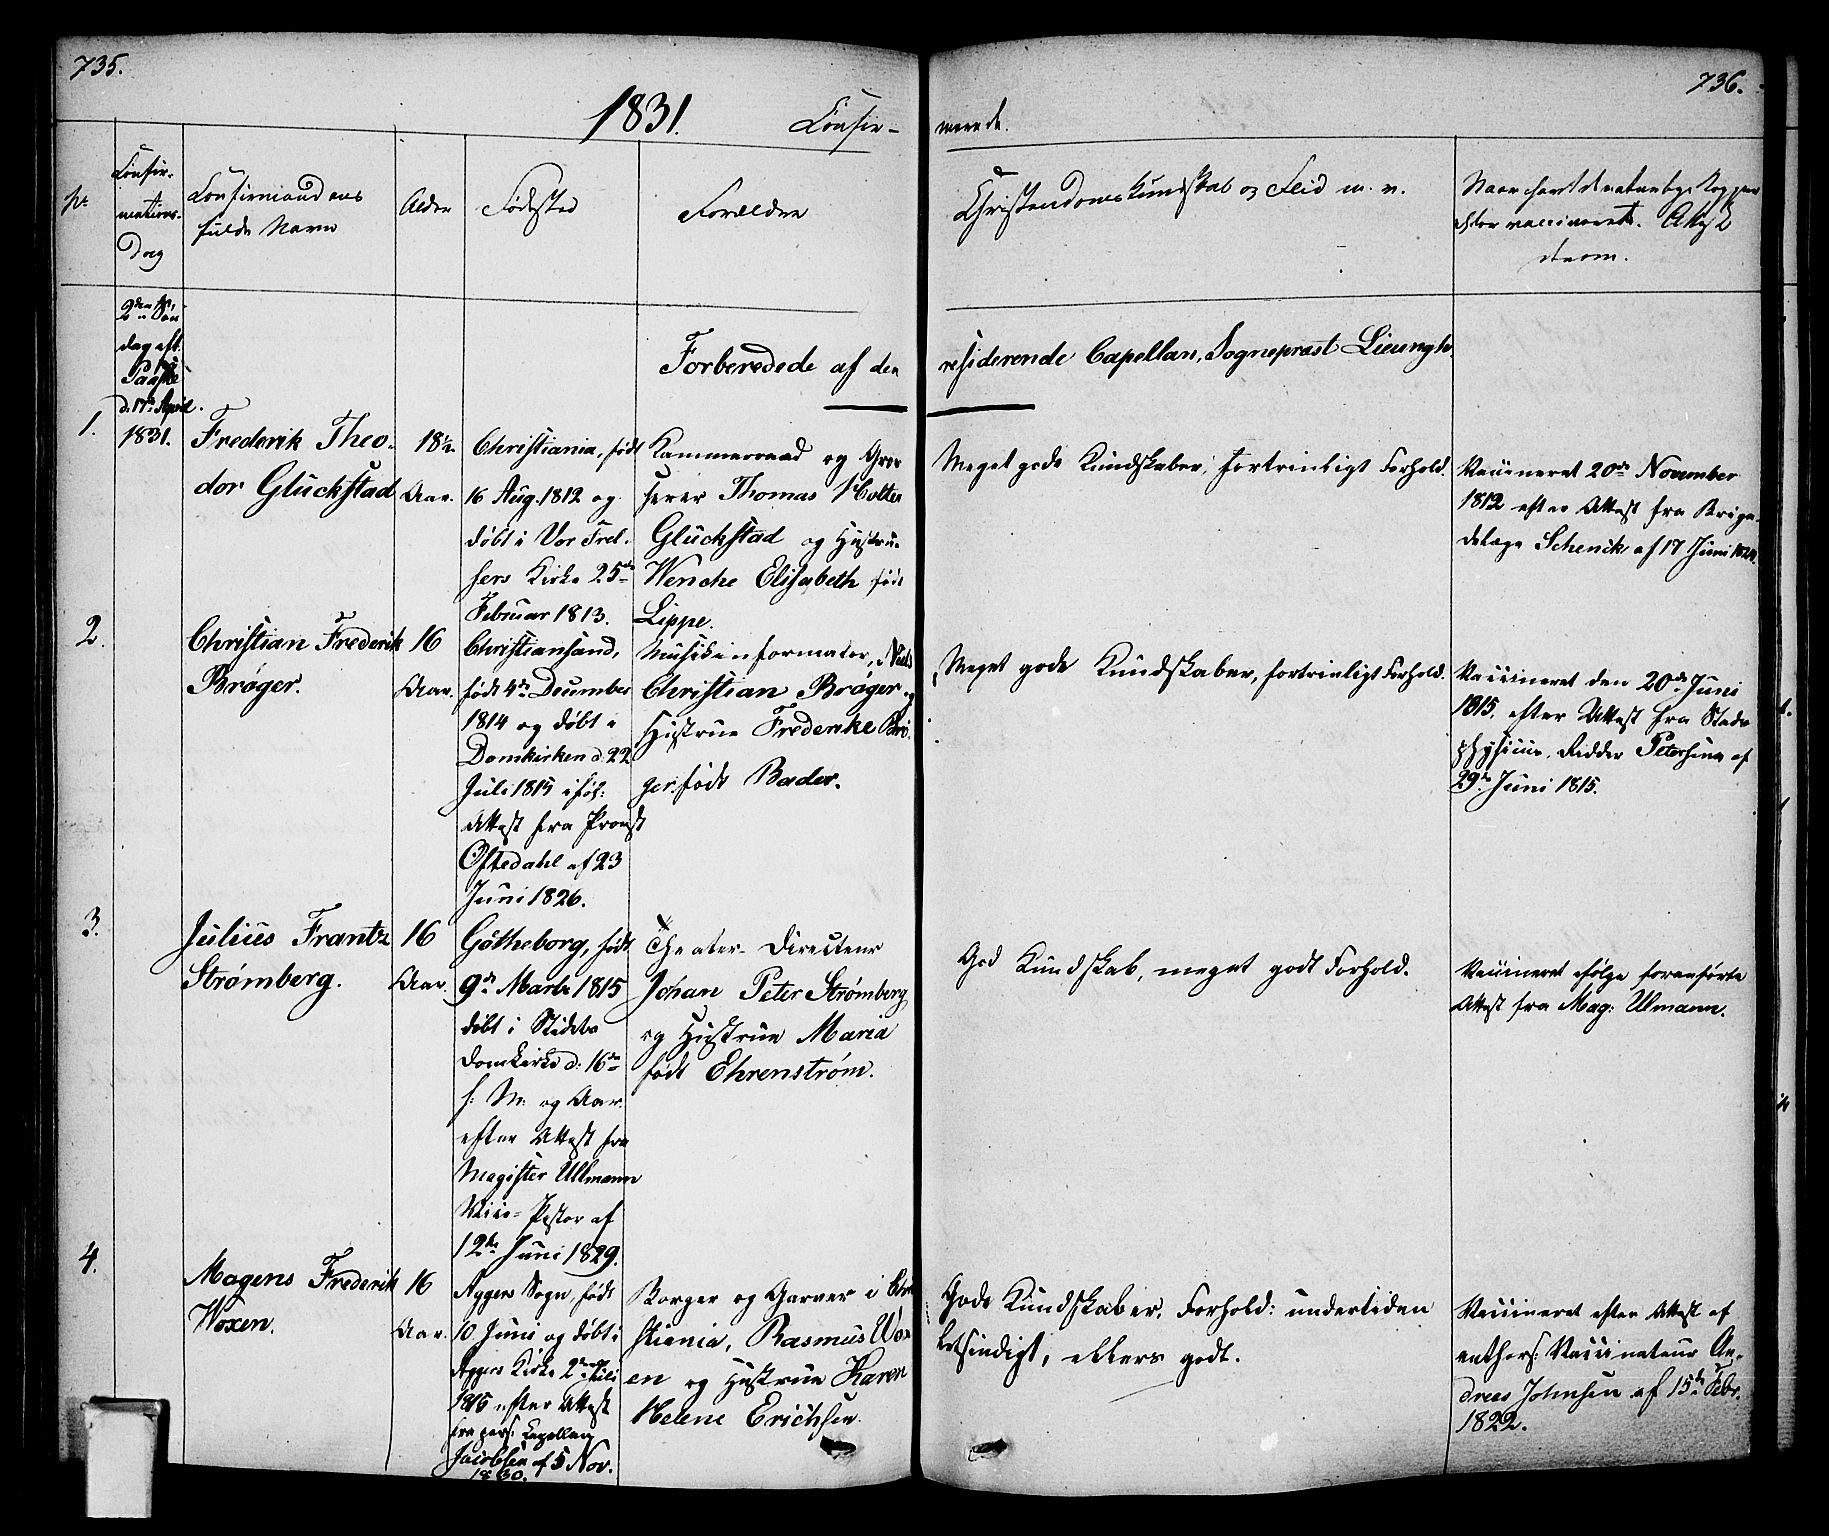 735.
736.
1831. Confir-
merede.
No
Confir-
mations-
Dag
Confirmandens
fulde Navn
Alder
Fødested
Forældre
Christendomskundskab og Flid m. v.
Naar havt de naturlige Kopper
eller vaccineret. Attest
derom.
2den Søn
dag eft.
Paaske
d. 17de April
1831.
Forberedede af den
residerende Capellan, Sognepræst Lieungh.
1.
Frederik Theo-
dor Gluckstad
18½
Aar.
Christiania, født
16 Aug. 1812 og
døbt i Vor Frel-
sers Kirke 25de
Februar 1813.
Kammerraad og Gros
serer Thomas Holter
Gluckstad og Hustrue
Wenche Elisabeth født
Lippe.
Meget gode Kundskaber, fortrinligt Forhold.
Vaccineret 20de November
1812 efter Attest fra Briga-
delæge Schenck af 17 Juni
2.
Christian Frederik
Brøger.
16
Aar.
Christiansand,
født 4de December
1814 og døbt i
Domkirken d. 22
Juli 1815 iføl:
Attest fra Provst
Oftedahl af 23
Juni 1826.
Musikinformator, Niels
Christian Brøger og
Hustrue Frederike Brø-
ger. født Bader.
Meget gode Kundskaber, fortrinligt Forhold.
Vaccineret den 20de Juni
1815. efter Attest fra Stads
physicus, Ridder Petersen af
29de Juni 1815.
3.
Julius Frantz
Strømberg.
16
Aar.
Gøtheborg, født
9de Marts 1815
døbt i Stedets
Domkirke d. 16de
s. M. og Aar.
efter Attest fra
Magister Ullmann
Vice-Pastor af
12te Juni 1829.
Theater-Directeur
Johan Peter Strømberg
og Hustrue Maria
født Ehrenstrøm.
God Kundskab, meget godt Forhold.
Vaccineret ifølge foranførte
Attest fra Mag: Ulmann.
4.
Magens Frederik
Woxen.
16
Aar.
Aggers Sogn, født
10 Juni og døbt i
Aggers Kirke 2den Juli
1815 efter Attest
fra pers: Capellan
Jacobsen af 5 Nov.
1830.
Borger og Garver i Chri
stiania, Rasmus Wox
en og Hustrue Karen
Helene Erichsen
Gode Kundskaber. Forhold: undertiden
letsindigt, ellers godt.
Vaccineret efter Attest af
authors: Vaccinateur An-
dreas Johnsen af 15de Febr.
1822.